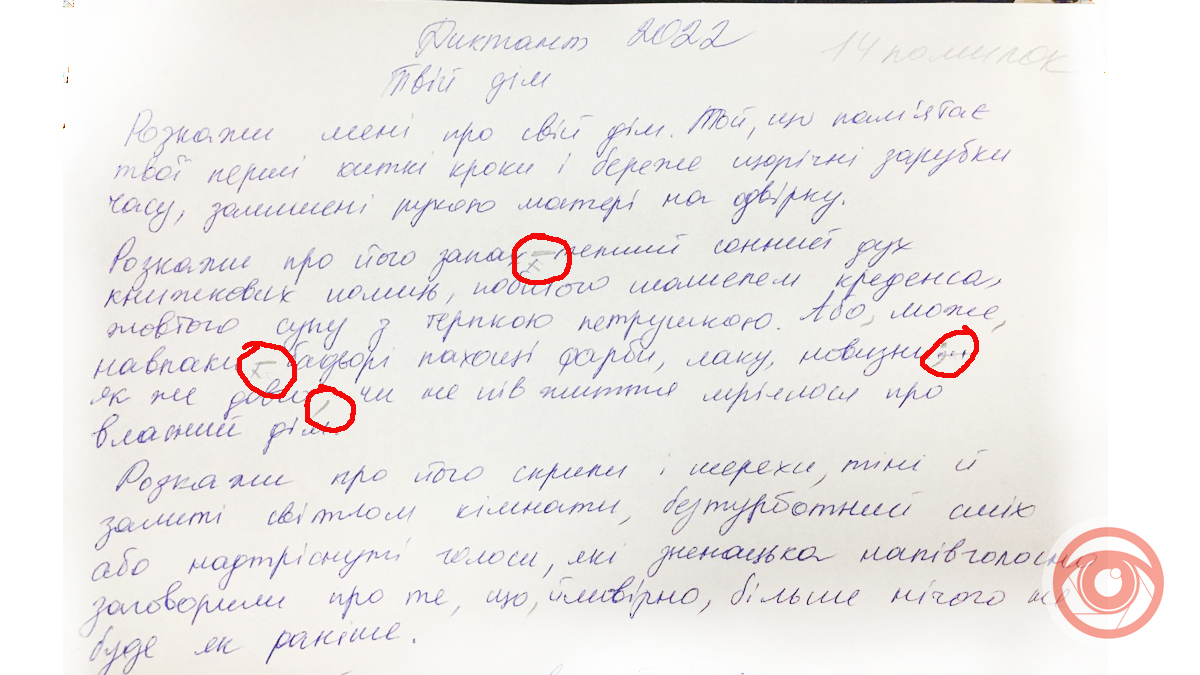 Диктант 2022
14 помилок
Твій дім
Розкажи мені про свій дім. Той, що пам'ятає
твої перші хиткі кроки і береже щорічні зарубки
часу, залишені рукою матері на одвірку.
Розкажи про його запах – теплий сонний дух
книжкових полиць, побитого шашелем креденса,
жовтого супу з терпкою петрушкою. Або, може,
навпаки – бадьорі пахощі фарби, лаку, новизни
як же довго, чи не пів життя мріялося про
власний дім.
Розкажи про його скрипи і шерехи, тіні й
залиті світлом кімнати, безтурботний сміх
або надтріснуті голоси, які зненацька напівголосно
заговорили про те, що, ймовірно, більше нічого не
буде як раніше.